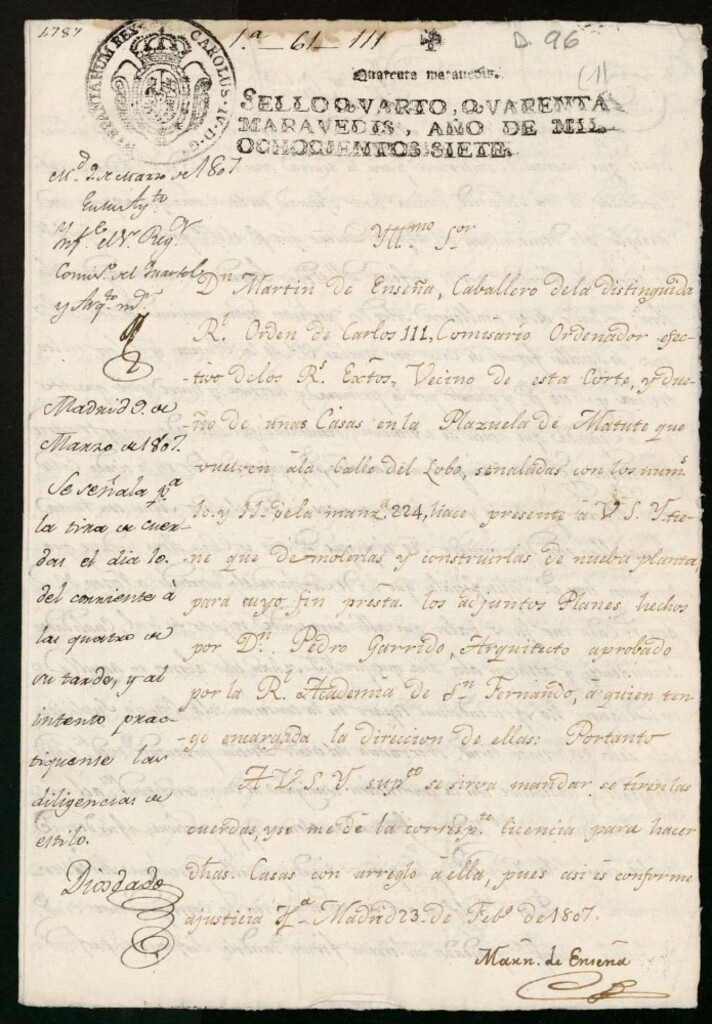 1787
1.ª - 61 - 111
D 96
(1)
HISPANIARUM REX CAROLUS IV D G
Quarenta maravedis.
SELLO QVARTO, QVARENTA
MARAVEDIS, AÑO DE MIL
OCHOCIENTOS SIETE.
M.d 2 de Marzo de 1807
Ynf.e el Sr. Reg.r
Comis.o del Quartel
y Arq.to m.r
Madrid 9. de
Marzo de 1807.
Se señala p.a
la tira de cuer-
das el dia 10.
del corriente à
las quatro de
su tarde, y al
intento prac-
tiquense las
diligencias de
estilo.
Diosdado
Yll.mo S.or
D.n Martin de Enseña, Caballero de la distinguida
R.l Orden de Carlos III, Comisario Ordenador efec-
tivo de los R.s Extos, Vecino de esta Corte, y due-
ño de unas Casas en la Plazuela de Matute que
vuelven âla Calle del Lobo, señaladas con los num.s
10. y 11. de la manz.a 224, hace presente â V. S. Y. tie-
ne que demolerlas y construirlas de nueba planta,
para cuyo fin presta. los adjuntos Planes hechos
por D.n Pedro Garrido, Arquitecto aprobado
por la R.l Academia de S.n Fernando, â quien ten-
go encargada la direccion de ellas: Portanto
A V. S. Y. sup.co se sirva mandar se tiren las
cuerdas, y se me dê la corresp.te licencia para hacer
dhas. Casas con arreglo â ella, pues asi es conforme
ajusticia Madrid 23 de Feb.o de 1807.
Marn. de Enseña